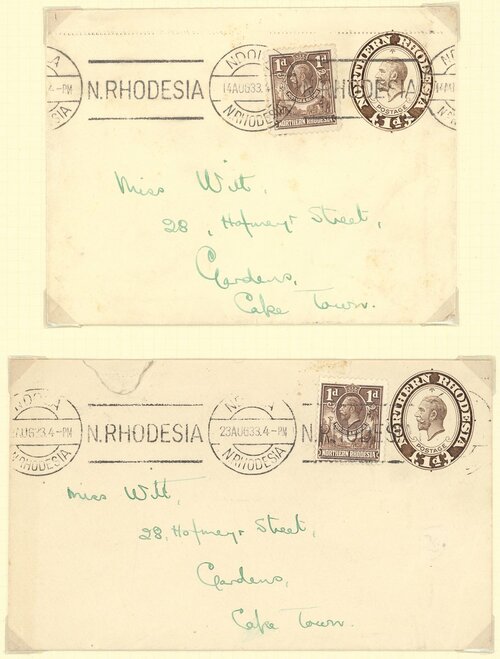 NDOLA
4-PM
N.RHODESIA
NDOLA
14AUG33.4
N.RHODESIA
1d 1d
NORTHERN RHODESIA
N.RHODESIA
NORTHERN RHODESIA
POSTAGE
1d.
Miss Witt,
28, Hofmeyr Street,
Gardens,
Cape Town.
NDOLA
AUG33.4-PM
N.RHODESIA
N.RHODESIA
NDOLA
23AUG33.4-PM
N.RHODESIA
1d 1d
NORTHERN RHODESIA
N.RHODES
NORTHERN RHODESIA
POSTAGE
1d.
Miss Witt,
28, Hofmeyr Street,
Gardens,
Cape Town.